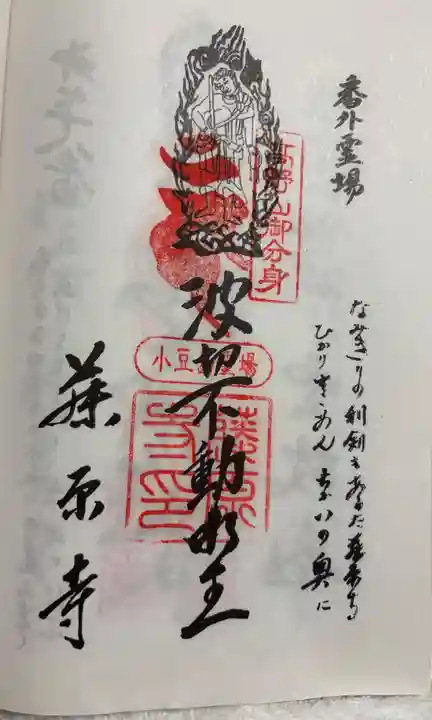 番外霊場
なみきりの利剣もあらた藤原寺
ひかりをこめん ちかいの奥に
高野山御分身
波切不動明王
小豆島霊場
藤原寺